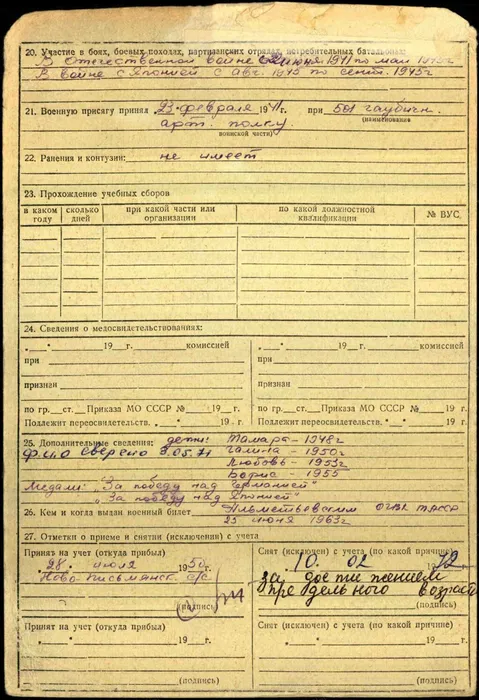 20. Участие в боях, боевых походах, партизанских отрядах, истребительных батальонах:
В Отечественной войне с июня 1941 по май 1945г
В войне с Японией с авг. 1945 по сент. 1945г
21. Военную присягу принял „23“ февраля 1941 г. при 501 гаубичн.
(наименование
арт. полку
воинской части)
22. Ранения и контузии: не имеет
23. Прохождение учебных сборов
в каком году | сколько дней | при какой части или организации | по какой должностной квалификации | № ВУС.
24. Сведения о медосвидетельствованиях:
„__“ 19__г. комиссией | „__“ 19__г. комиссией
при | при
признан | признан
по гр.__ст.__Приказа МО СССР №__19__г. | по гр.__ст.__Приказа МО СССР №__19__г.
Подлежит переосвидетельств. „__“ 19 г. | Подлежит переосвидетельств. „__“ 19 г.
25. Дополнительные сведения: дети: Тамара - 1948г
Ф.И.О сверено 3.05.71 Галина - 1950г
Любовь - 1953г
Борис - 1955
Медали: „За победу над Германией"
„За победу над Японией"
26. Кем и когда выдан военный билет Альметьевским ТАССР
25 июня 1963г.
27. Отметки о приеме и снятии (исключении) с учета
Принят на учет (откуда прибыл) | Снят (исключен) с учета (по какой причине)
„28“ июля 1950г. | 10. 02 72
Ново-Письмянск. с/с | за достижением
предельного возраста
(подпись) | (подпись)
Принят на учет (откуда прибыл) | Снят (исключен) с учета (по какой причине)
„__“ 19__г. | „__“ 19__г.
(подпись) | (подпись)